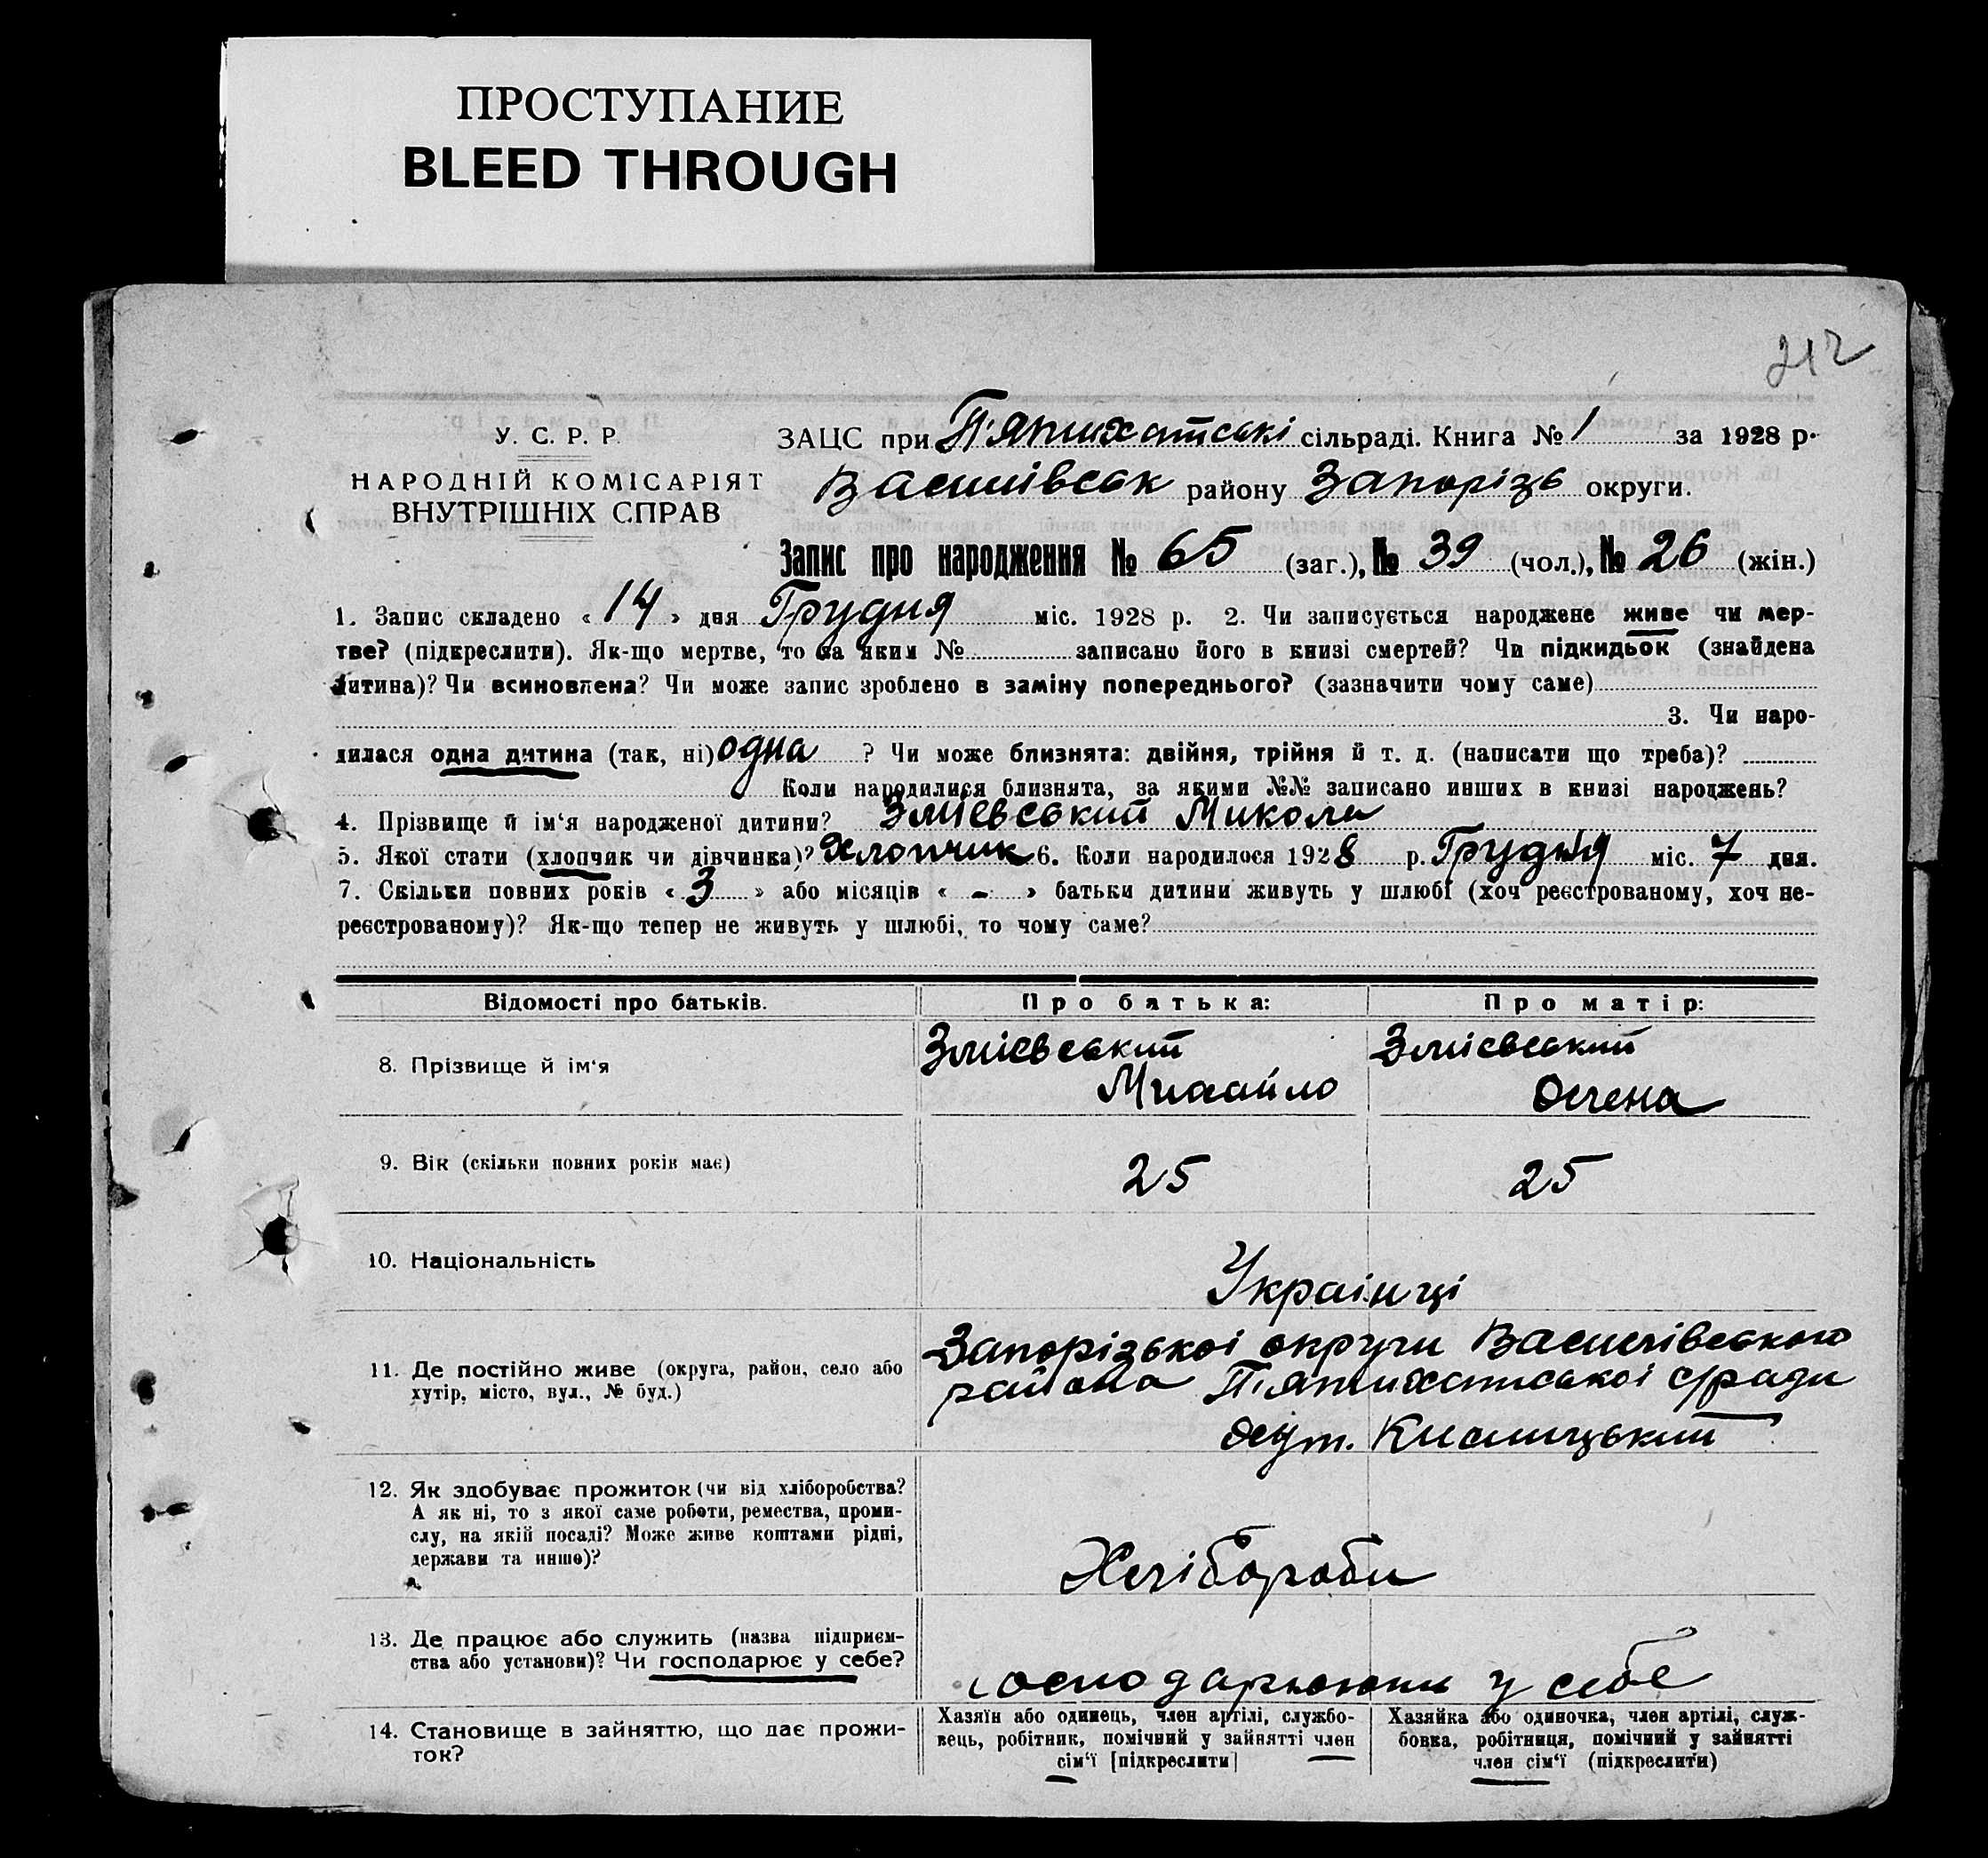 ПРОСТУПАНИЕ
BLEED THROUGH
212
У. С. Р. Р.
НАРОДНІЙ КОМІСАРІЯТ
ВНУТРІШНІХ СПРАВ
ЗАЦС при П'ятихатські сільраді. Книга № 1 за 1928 р.
Василівськ району Запорізь округи.
Запис про народження № 65 (заг.), № 39 (чол.), № 26 (жін.)
1. Запис складено « 14 » дня Грудня міс. 1928 р. 2. Чи записується народжене живе чи мер-
тве? (підкреслити). Як-що мертве, то за яким № записано його в книзі смертей? Чи підкидьок (знайдена
дитина)? Чи всиновлена? Чи може запис зроблено в заміну попереднього? (зазначити чому саме)
3. Чи наро-
дилася одна дитина (так, ні) одна ? Чи може близнята: двійня, трійня й т. д. (написати що треба)?
Коли народилися близнята, за якими №№ записано инших в книзі народжень?
4. Прізвище й ім‘я народженої дитини? Змієвський Микола
5. Якої стати (хлопчик чи дівчинка)? Хлопчик 6. Коли народилося 1928 р. Грудня міс. 7 дня.
7. Скільки повних років « 3 » або місяців « - » батьки дитини живуть у шлюбі (хоч реєстрованому, хоч не-
реєстрованому)? Як-що тепер не живуть у шлюбі, то чому саме?
Відомості про батьків. Про батька: Про матір:
8. Прізвище й ім‘я Змієвський Михайло Змієвський Олена
9. Вік (скільки повних років має) 25 25
10. Національність Українці
11. Де постійно живе (округа, район, село або
хутір, місто, вул., № буд.)
Запорізької округи Василівського
района П'ятихатської с/ради
хут. Кислицький
12. Як здобуває прожиток (чи від хліборобства?
А як ні, то з якої саме роботи, ремества, проми-
слу, на якій посаді? Може живе коштами рідні,
держави та инше)?
Хлібороби
13. Де працює або служить (назва підприєм-
ства або установи)? Чи господарює у себе?
господарюють у себе
14. Становище в зайняттю, що дає прожи-
ток?
Хазяїн або одинець, член артілі, службо-
вець, робітник, помічний у зайнятті член
сім‘ї [підкреслити]
Хазяйка або одиночка, член артілі, служ-
бовка, робітниця, помічний у зайнятті
член сім‘ї (підкреслити)